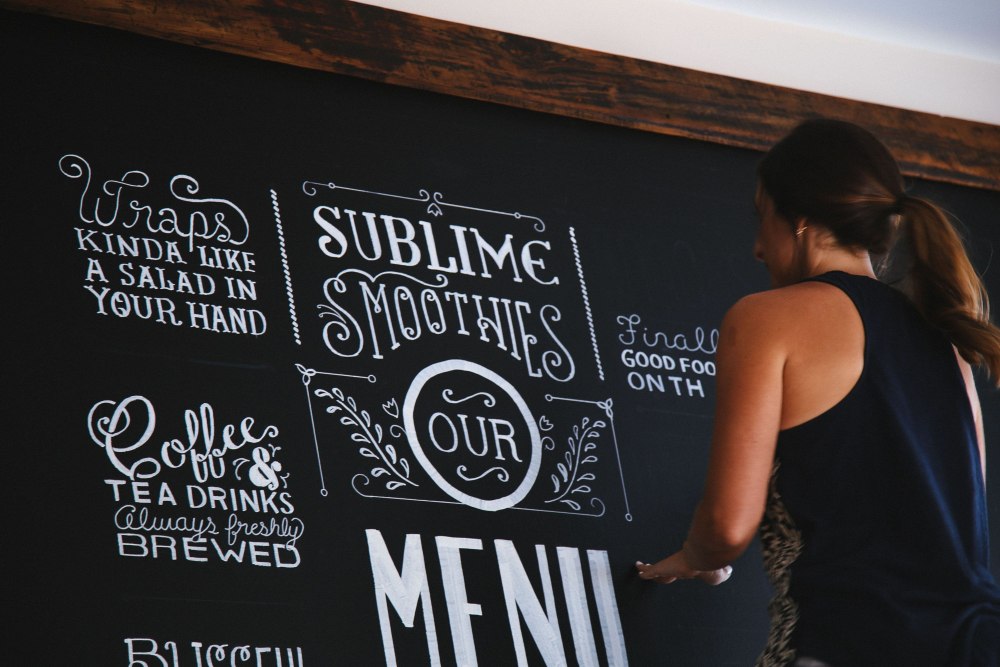 Wraps
KINDA LIKE
A SALAD IN
YOUR HAND
SUBLIME
SMOOTHIES
Coffee
&
TEA DRINKS
Always freshly
BREWED
OUR
MENU
GOOD
ON